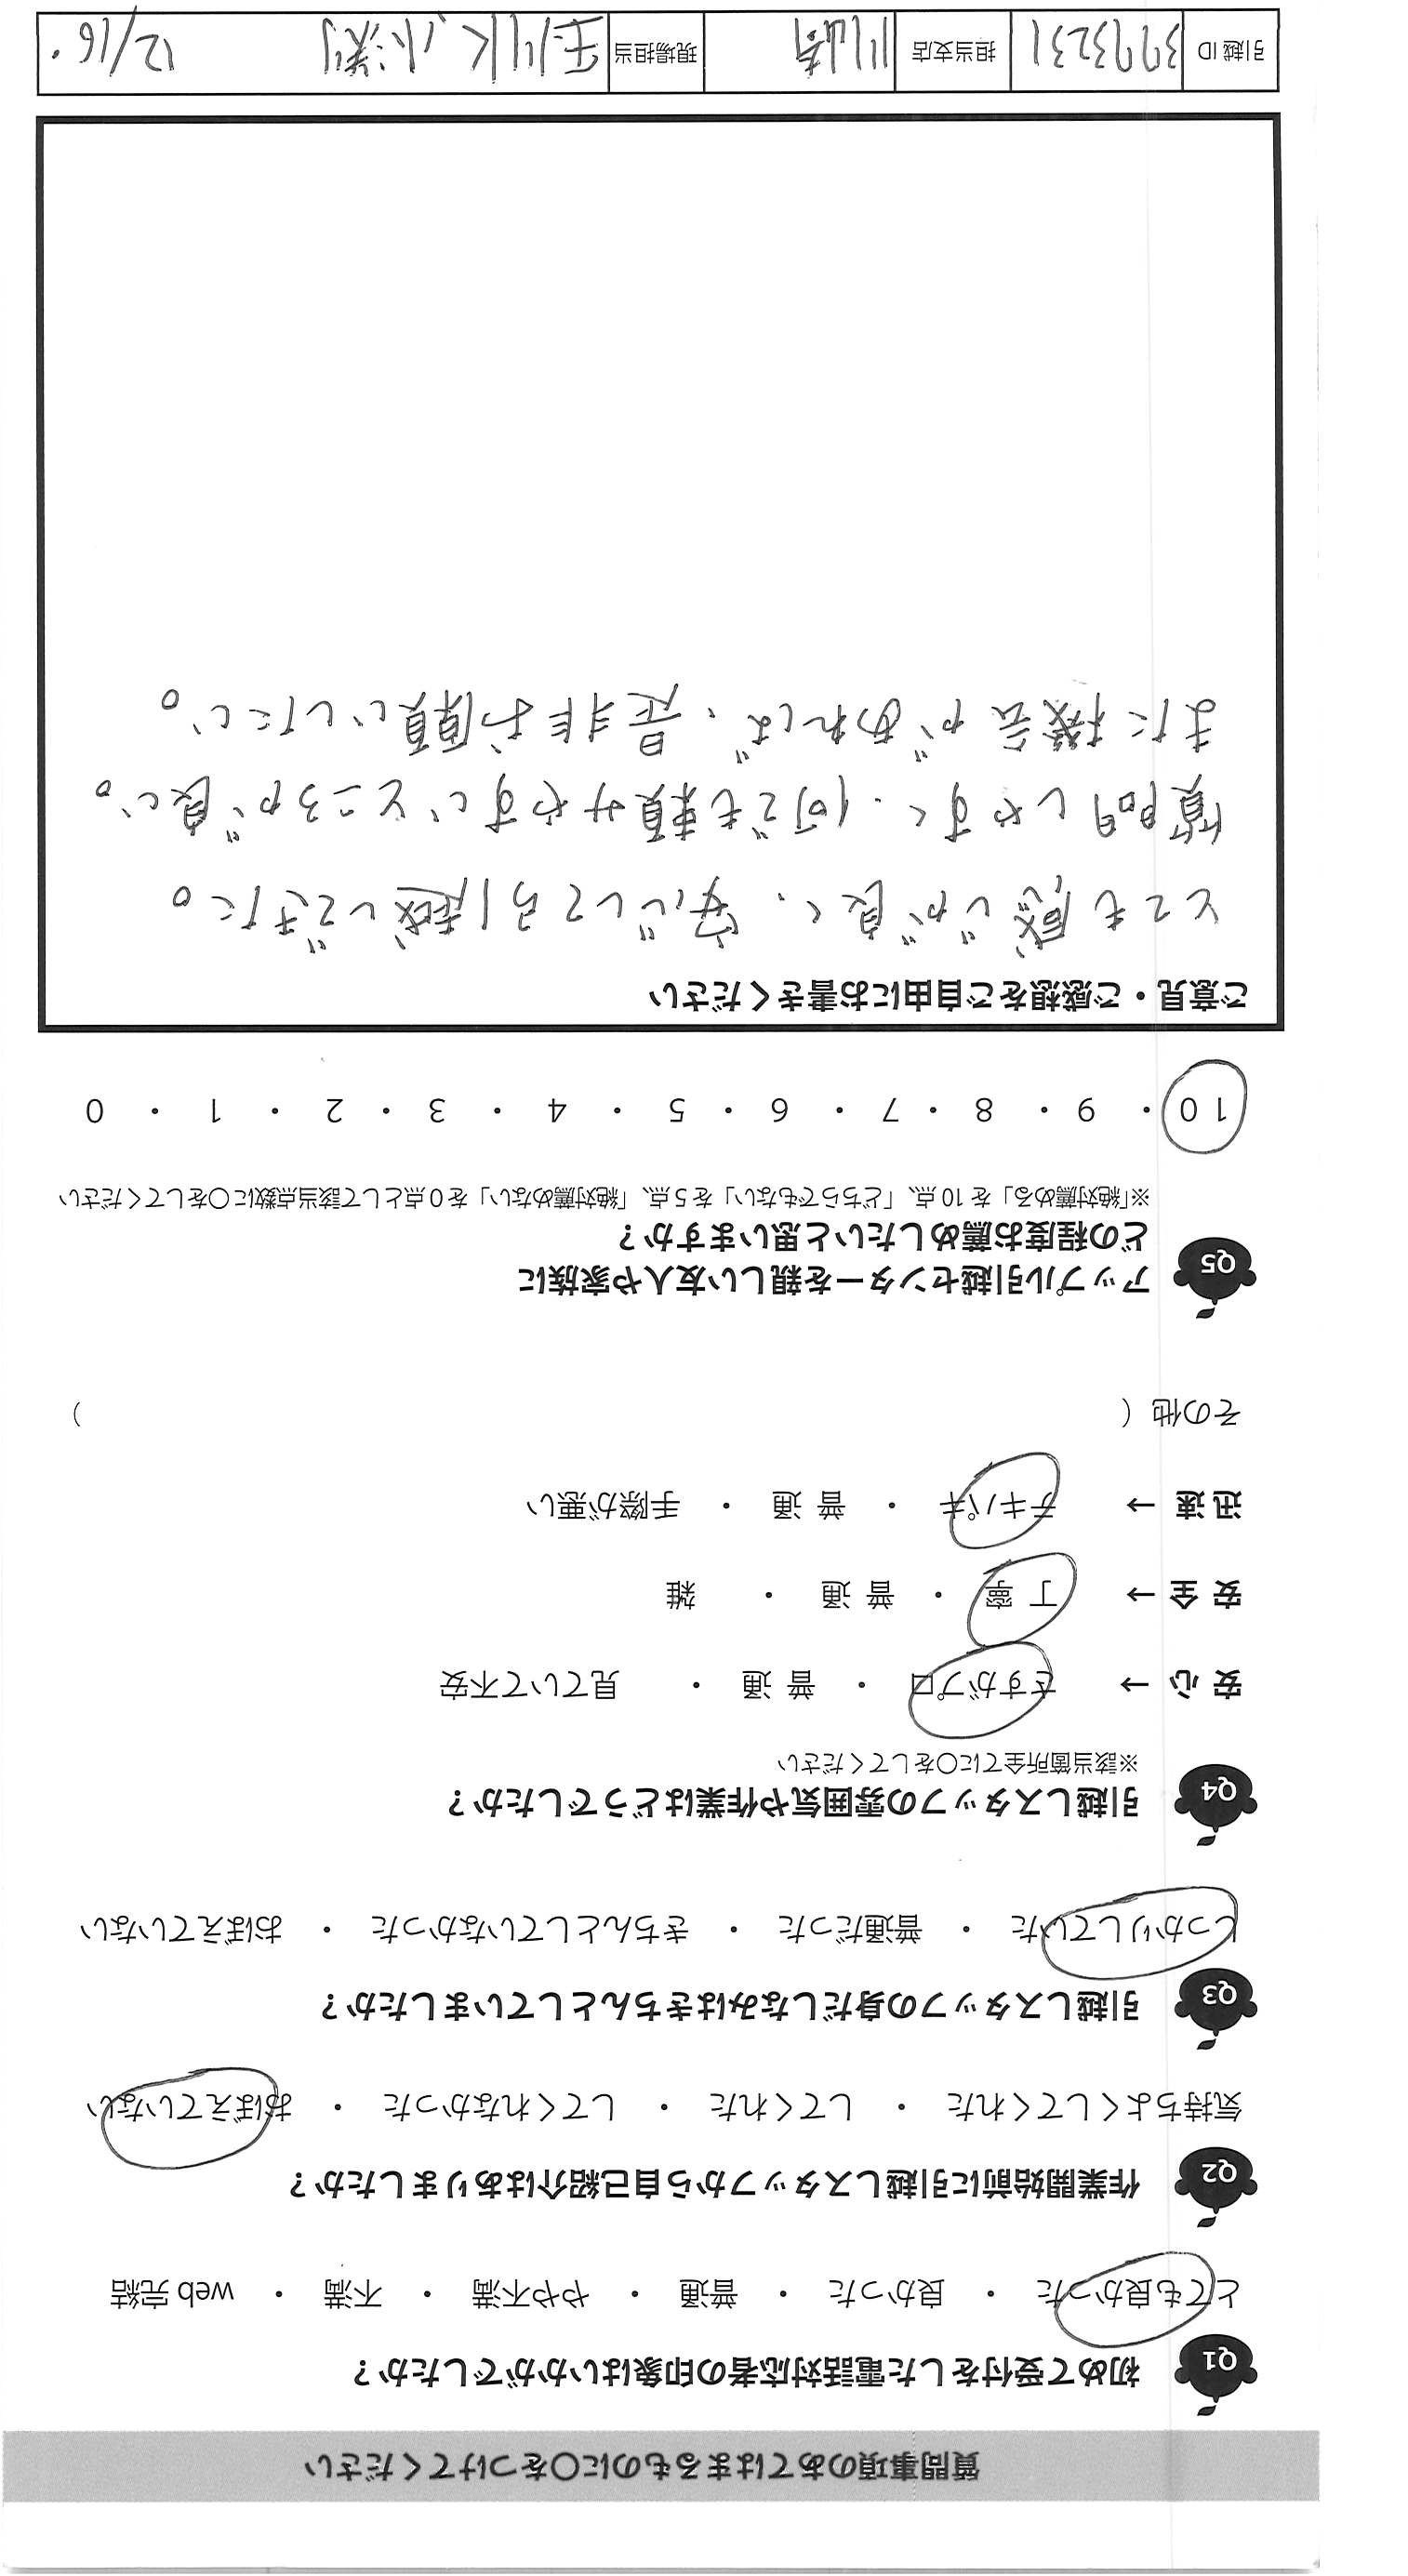 質問事項のあてはまるものに〇をつけてください
Q1 初めて受付をした電話対応者の印象はいかがでしたか？
とても良かった ・ 良かった ・ 普通 ・ やや不満 ・ 不満 ・ web 完結
Q2 作業開始前に引越しスタッフから自己紹介はありましたか？
気持ちよくしてくれた ・ してくれた ・ してくれなかった ・ おぼえていない
Q3 引越しスタッフの身だしなみはきちんとしていましたか？
しっかりしていた ・ 普通だった ・ きちんとしていなかった ・ おぼえていない
Q4 引越しスタッフの雰囲気や作業はどうでしたか？
※該当箇所全てに〇をしてください
安 心 → さすがプロ ・ 普 通 ・ 見ていて不安
安 全 → 丁 寧 ・ 普 通 ・ 雑
迅 速 → テキパキ ・ 普 通 ・ 手際が悪い
その他（ ）
Q5 アップル引越センターを親しい友人や家族に
どの程度お薦めしたいと思いますか？
※「絶対薦める」を 10 点、「どちらでもない」を 5 点、「絶対薦めない」を 0 点として該当点数に〇をしてください
10 ・ 9 ・ 8 ・ 7 ・ 6 ・ 5 ・ 4 ・ 3 ・ 2 ・ 1 ・ 0
ご意見・ご感想をご自由にお書きください
とても感じが良く、安心して引越しできた。
質問しやすく、何でも頼みやすいところが良い。
また機会があれば、是非お願いしたい。
引越 ID 3973231 担当支店 川崎 現場担当 玉川K, 小渕 12/16.